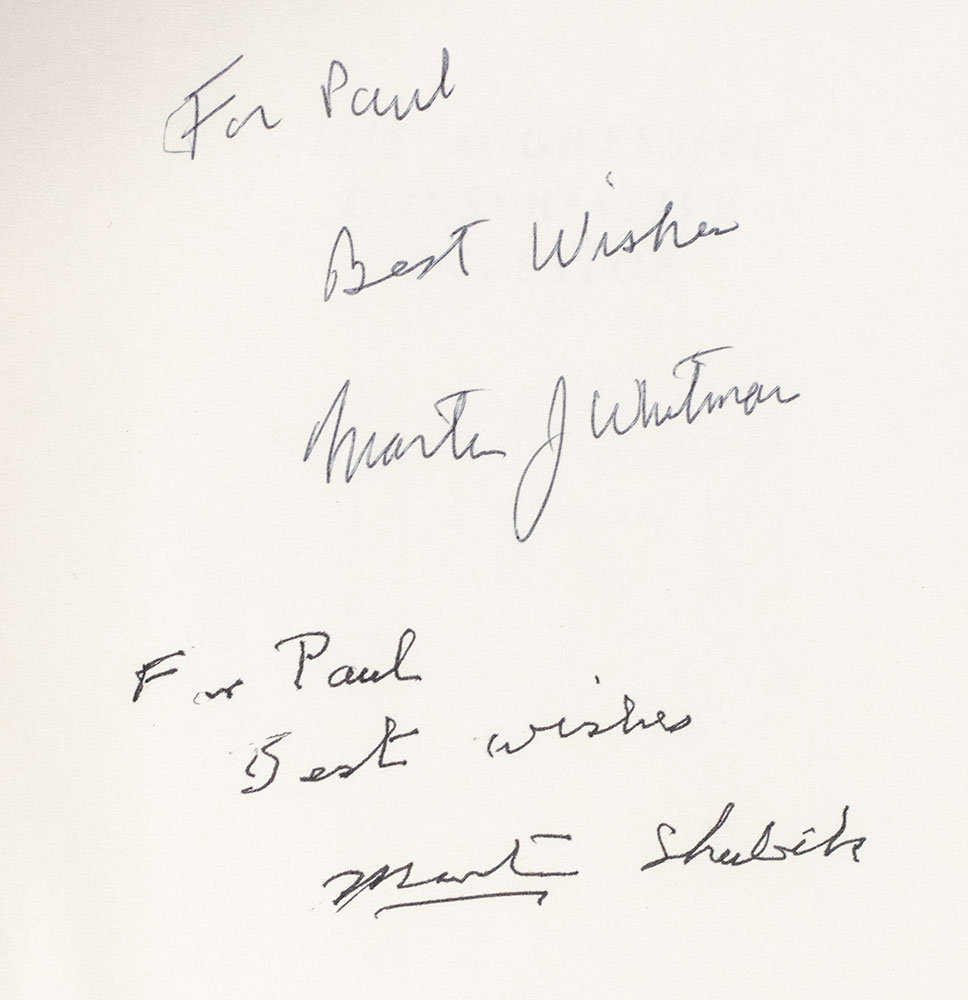 For Paul
Best Wishes
Martin J Whitman
For Paul
Best wishes
Martin Shubik